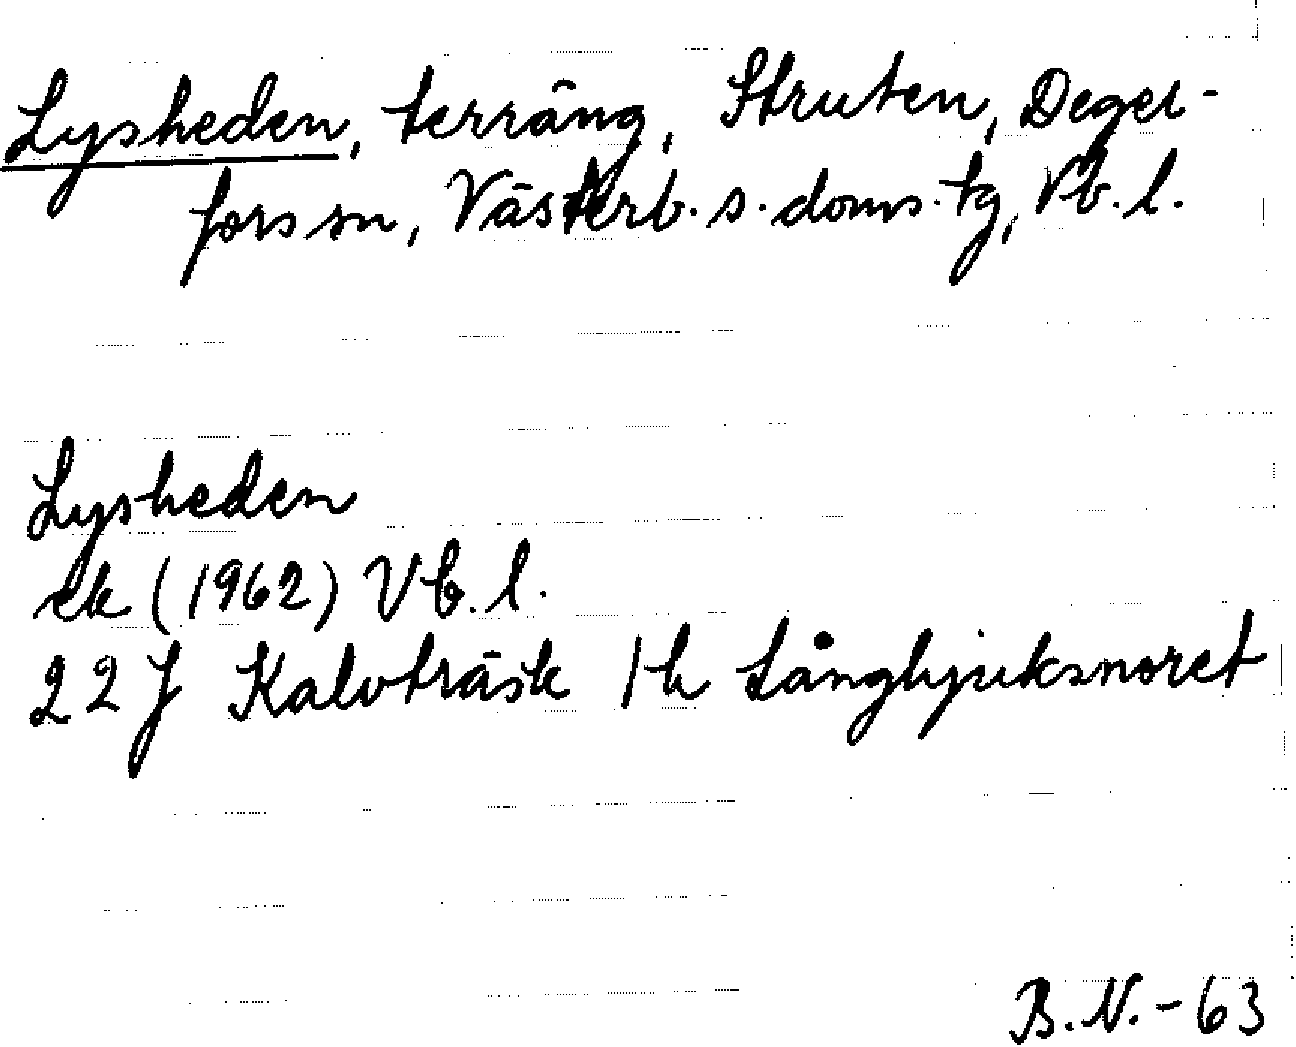 Lysheden, terräng, Struten, Deger-
fors sn, Västerb. s. doms. tg, Vb. l.
Lysheden
ek (1962) Vb. l.
22 J Kalvträsk 1 h Långhjuksnoret
B. N. - 63